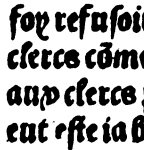 foy refusoi
clercs cõme
aux clercs
eut este ia